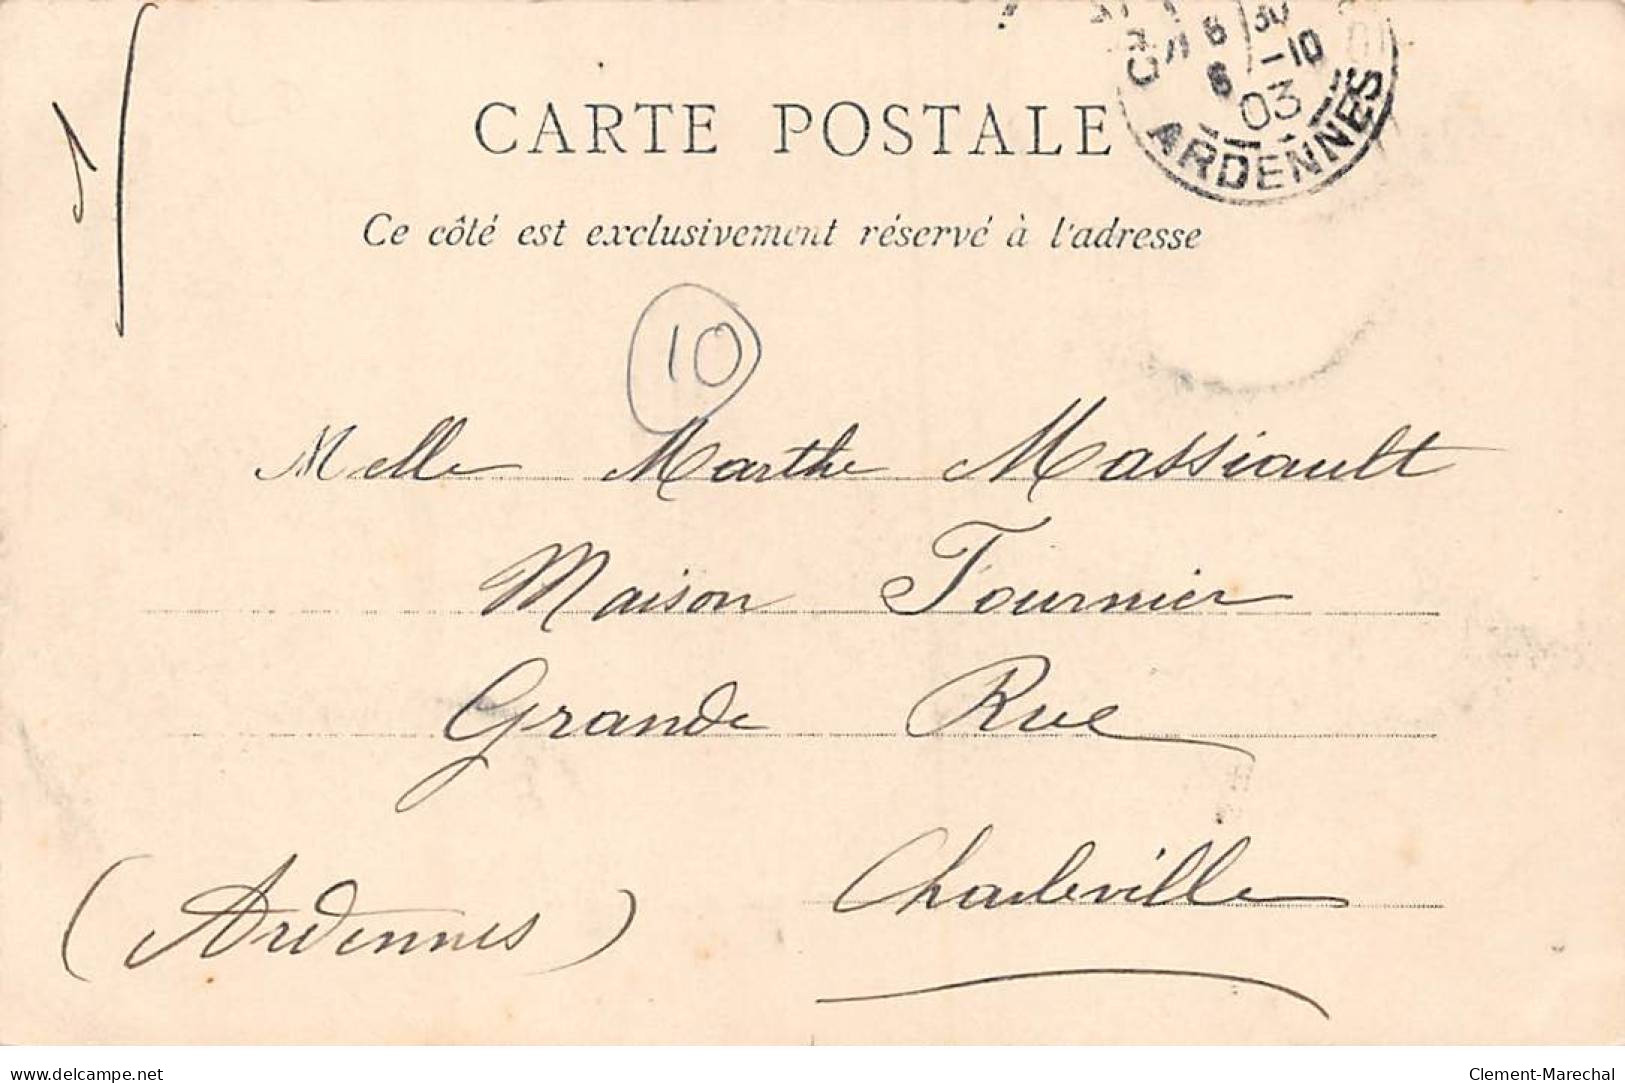 CARTE POSTALE
Ce côté est exclusivement réservé à l'adresse
8 30
6 -10
03
ARDENNES
10
Melle Marthe Massiault
Maison Fournier
Grande Rue
Charleville
(Ardennes)
www.delcampe.net
Clement-Marechal